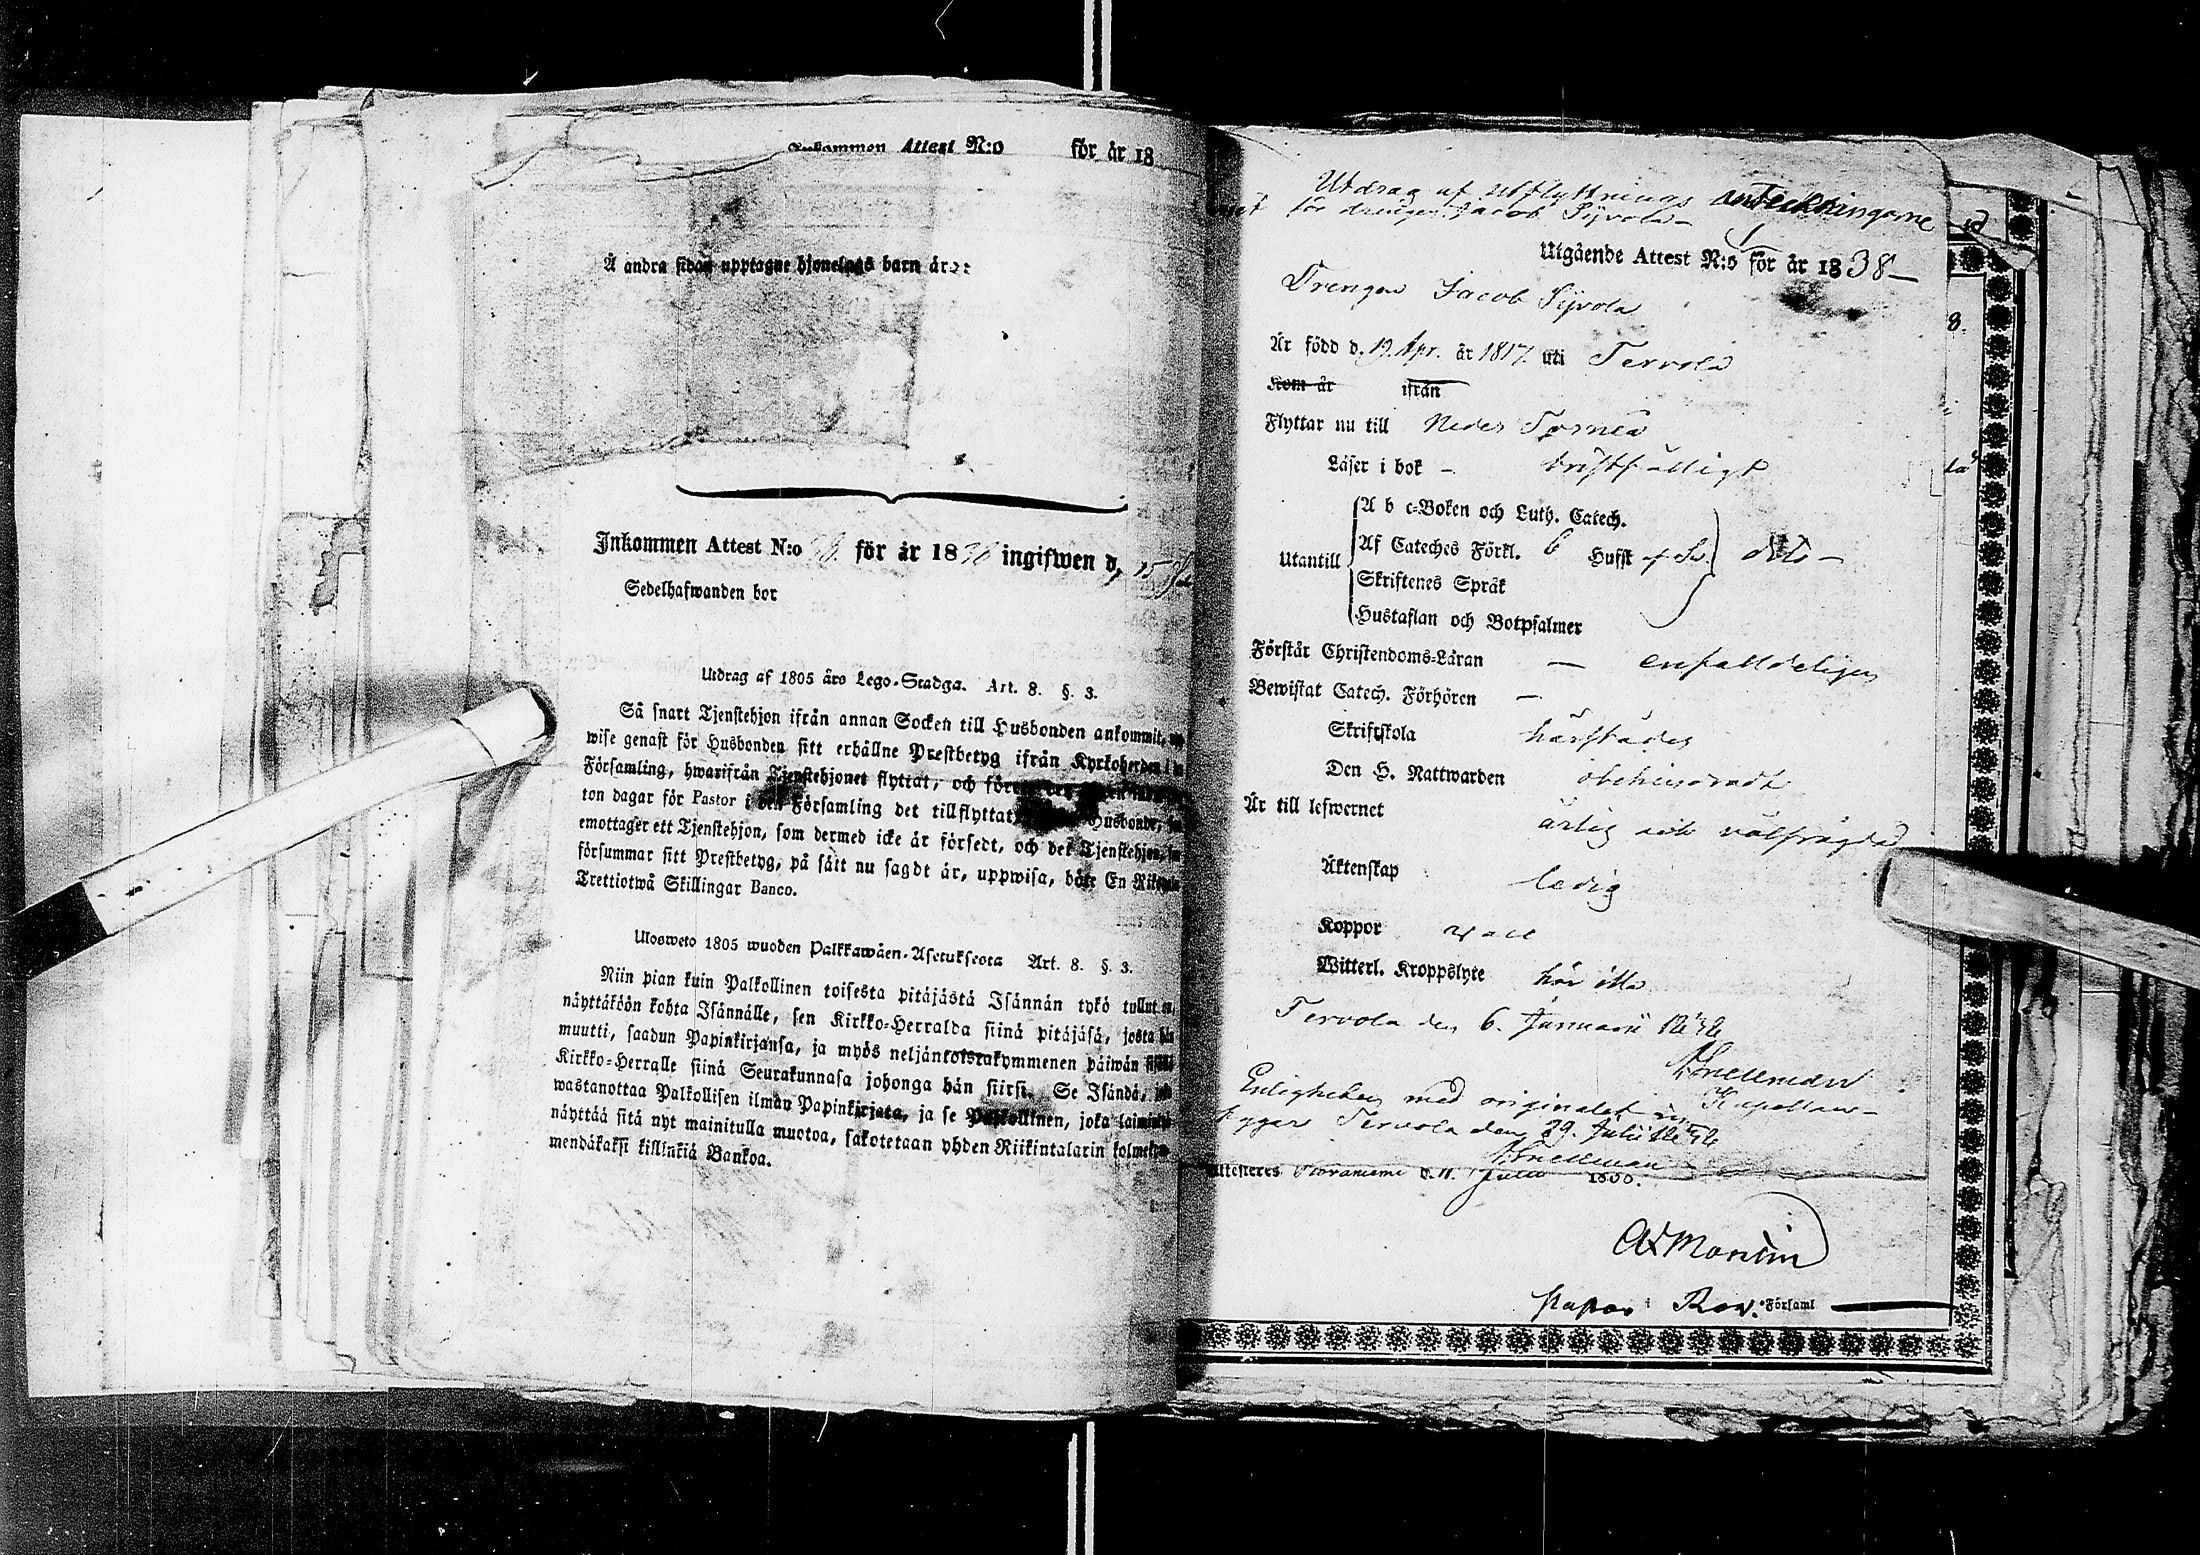 Inkommen Attest N:o för år 18
Å andra sidan upptagne hjonelags barn äro:
Inkommen Attest N:o för år 18 ingifwen d. 15
Sedelhafwanden bor
Utdrag af 1805 års Lego-Stadga. Art. 8. §. 3.
Så snart Tjenstehjon ifrån annan Socken till Husbonden ankommit,
wise genast för Husbonden sitt erhållne Prestbetyg ifrån Kyrkoherden i
Församling, hwarifrån Tjenstehjonet flyttat, och
ton dagar för Pastor i den Församling det tillflyttat, Husbonde,
emottager ett Tjenstehjon, som dermed icke är försedt, och det Tjenstehjon,
försummar sitt Prestbetyg, på sätt nu sagdt är, uppwisa, böte En
Trettiotwå Skillingar Banco.
Ulosweto 1805 wuoden Palkkawäen-Asetuksesta Art. 8. §. 3.
Niin pian kuin Palkollinen toisesta pitäjästä Isännän tykö tullut on,
näyttäköön kohta Isännälle, sen Kirkko-Herralda siinä pitäjäsä, josta hän
muutti, saadun Papinkirjansa, ja myös neljäntoistakymmenen päiwän
Kirkko-Herralle siinä Seurakunnasa johonga hän siirsi. Se Isändä,
wastanottaa Palkollisen ilman Papinkirjata, ja se Palkollinen, joka
näyttää sitä nyt mainitulla muotoa, sakotetaan yhden Riikintalarin
mendäkaksi killinkiä Bankoa.
Utdrag af Utflyttnings anteckningarne
för drengen Jacob Syvola
Utgående Attest N:o för år 1838
Drengen Jacob Syvola
Är född d. 19 Apr. år 1817 uti Tervola
Kom år ifrån
Flyttar nu till Neder Torneå
Läser i bok - bristfälligt
A b c-Boken och Luth. Catech.
Utantill Af Cateches Förkl. 6 Hufst af Sv. dito -
Skriftenes Språk
Hustaflan och Botpsalmer
Förstår Christendoms-Läran - enfaldeligen
Bewistat Catech. Förhören -
Skriftskola härstädes
Den H. Nattwarden obehindradt
Är till lefwernet ärlig och välfrägdad
Äktenskap ledig
Koppor
Witterl. Kroppslyte
Tervola den 6. Januarii
Snellman
Kapellan
Enligheten med originalet
Tervola den 29. Julii
Snellman
Attesteras Rovaniemi d. 11. Julii
Pastor i Rov. Församl